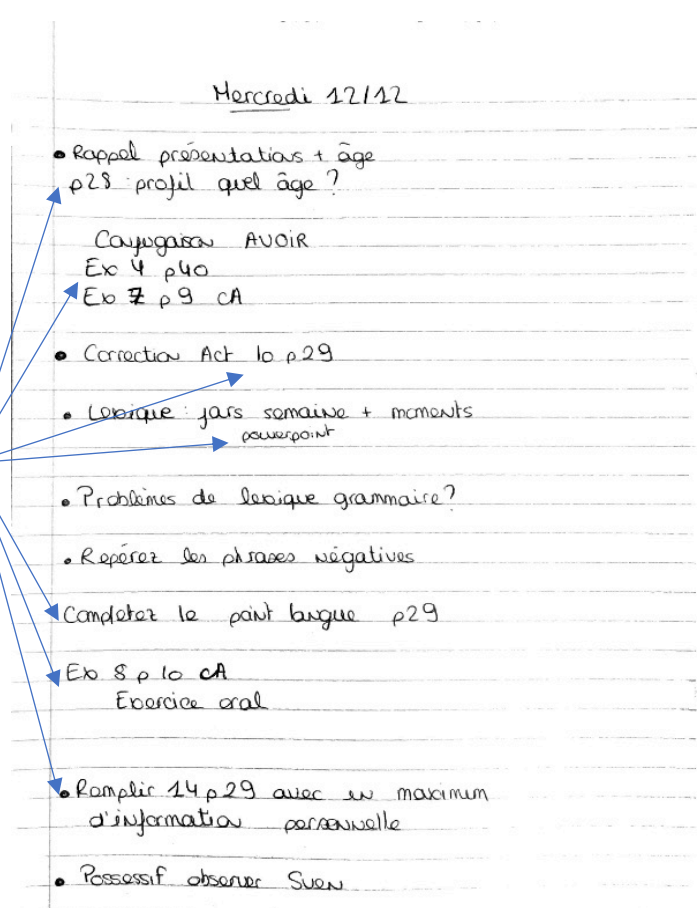 Mercredi 12/12
• Rappel présentations + âge
p28 : profil quel âge ?
Conjugaison AVOIR
Ex 4 p40
Ex 7 p9 CA
• Correction Act 10 p29
• Lexique : jours semaine + moments
powerpoint
• Problèmes de lexique grammaire ?
• Repérez les phrases négatives
Completez le point langue p29
Ex 8 p 10 CA
Exercice oral
• Remplir 14 p29 avec un maximum
d'information personnelle
• Possessif observer Sven